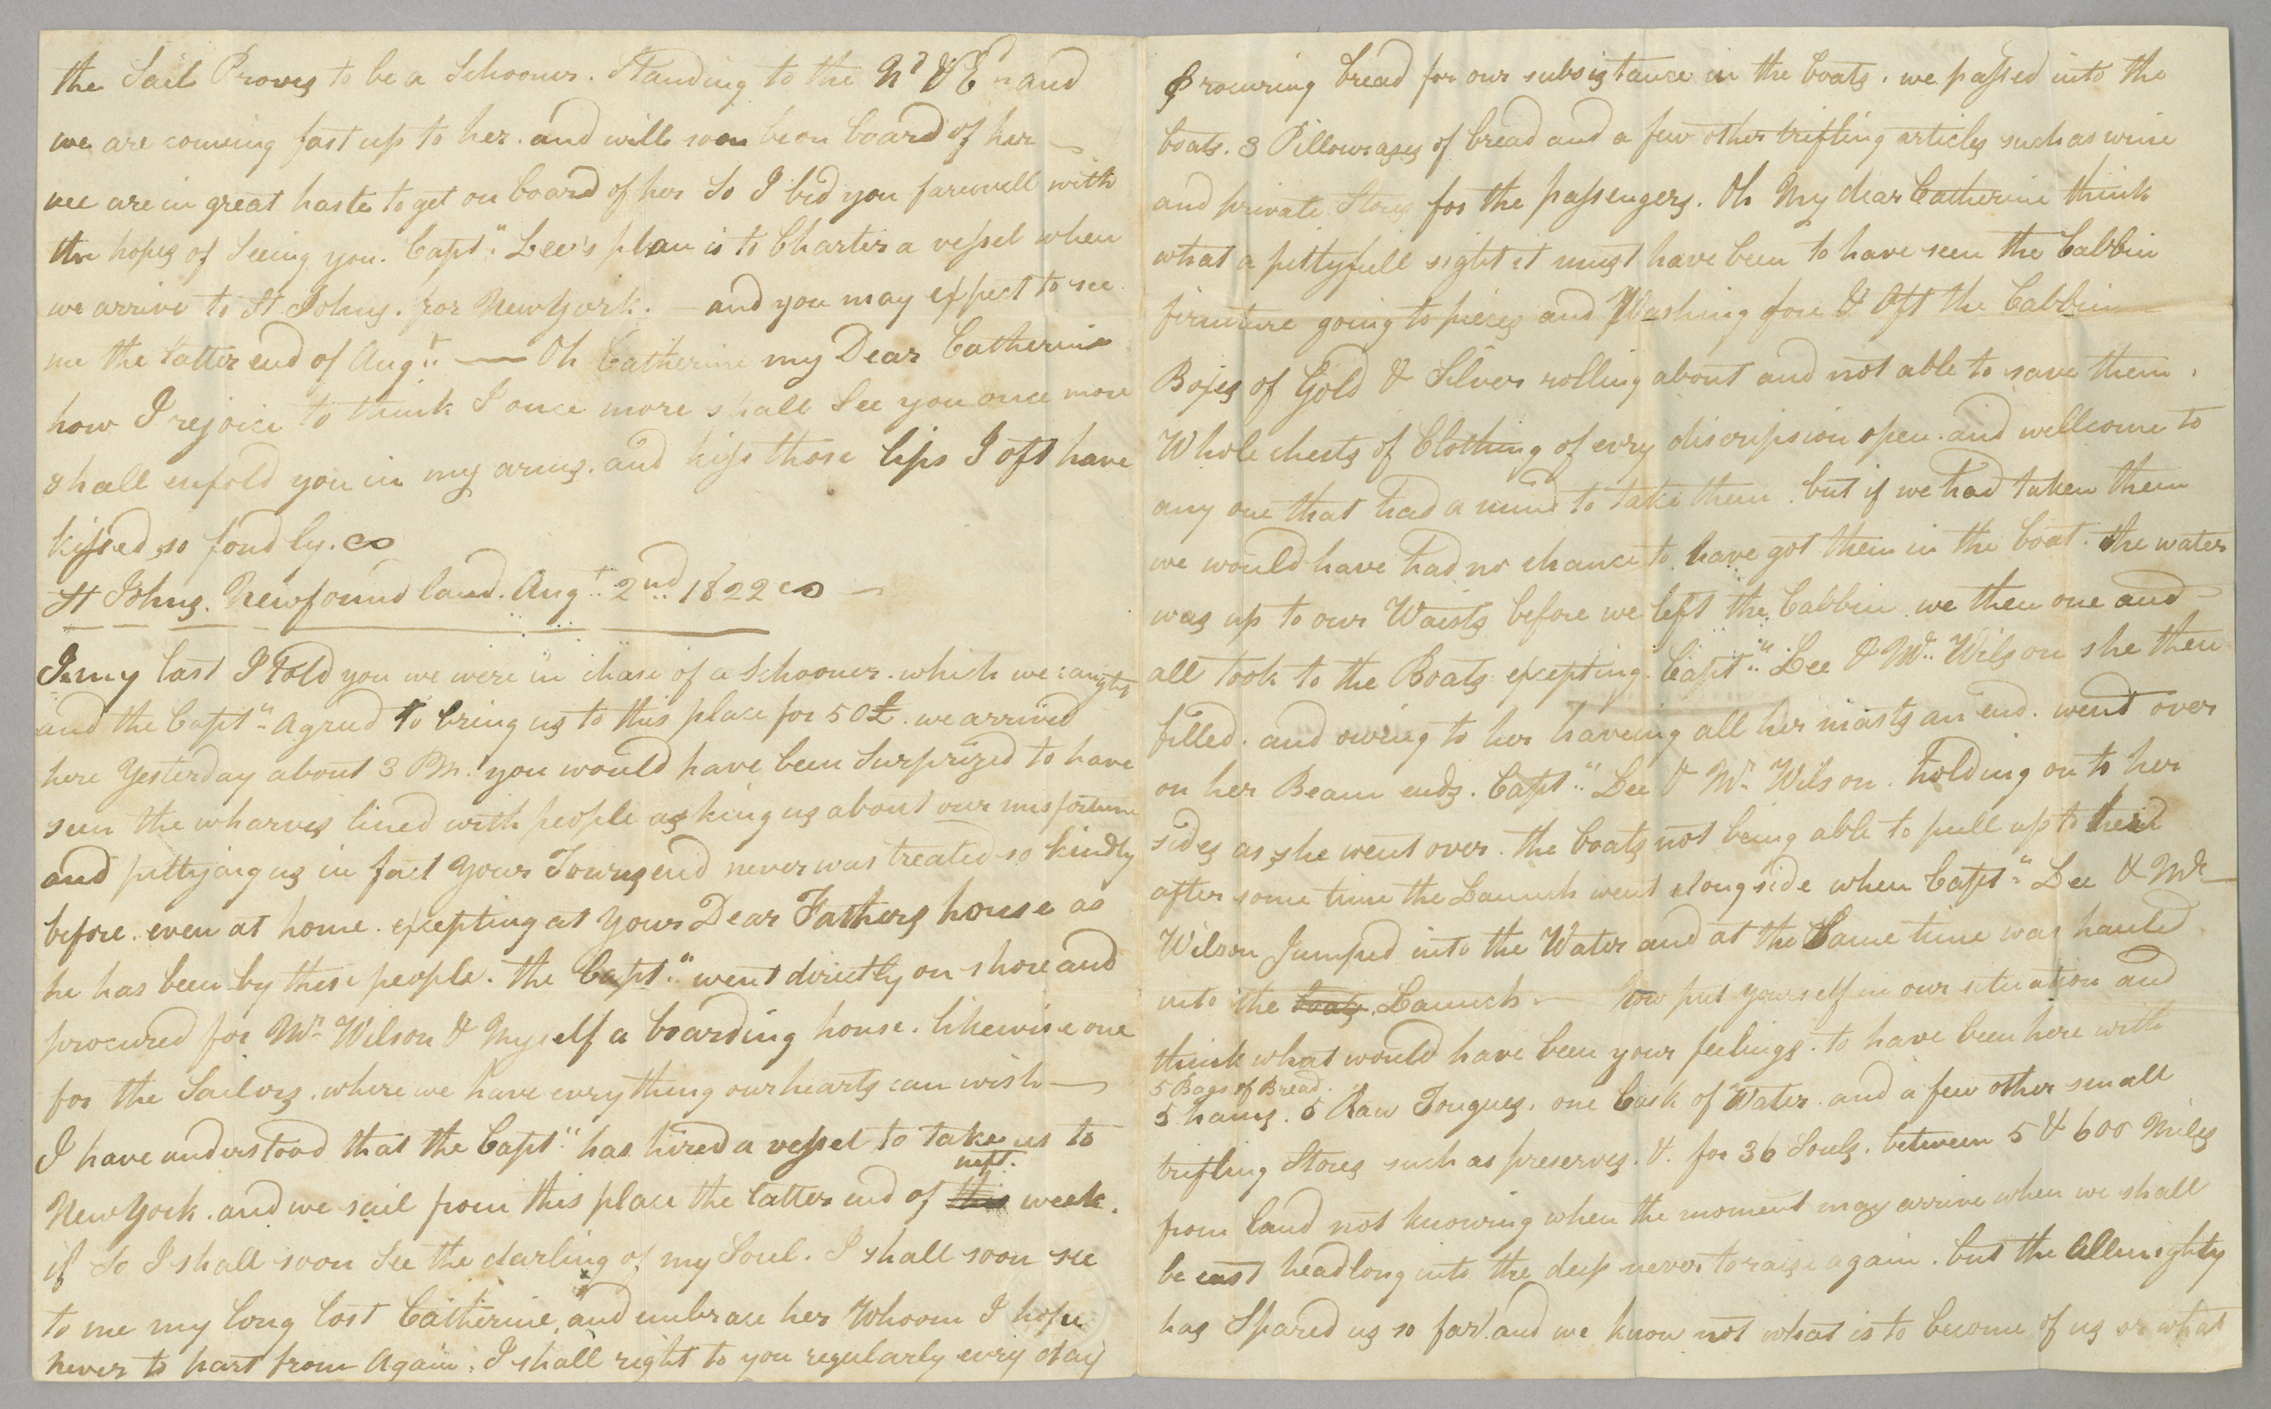 the Sail Proves to be a Schooner. Standing to the Nd & Ed and
we are coming fast up to her. and will soon be on board of her —
we are in great haste to get on board of her So I bid you farewell with
the hopes of Seeing you. Capt" Lee's plan is to Charter a vessel when
we arrive to St Johns. for New York. — and you may expect to see
me the latter end of Augt — Oh Catherine my Dear Catherine
how I rejoice to think I once more shall See you once more
shall enfold you in my arms. and kiss those lips I oft have
kissed so fondly.
St Johns. Newfoundland. Augt 2nd 1822 —
In my last I told you we were in chase of a Schooner. which we caught
and the Capt" Agreed to bring us to this place for 50£. we arrived
here Yesterday about 3 PM. you would have been Surprized to have
seen the wharves lined with people asking us about our misfortune
and pittying us in fact your Townsend never was treated so kindly
before. even at home. excepting at your Dear Fathers house as
he has been by these people. the Capt" went directly on shore and
procured for Mr Wilson & Myself a boarding house. likewise one
for the Sailors. where we have evrything our hearts can wish —
I have understood that the Capt" has hired a vessel to take us to
New York. and we sail from this place the latter end of this next. week.
if So I shall soon See the darling of my Soul. I shall soon see
to me my long lost Catherine, and embrace her Whoom I hope
never to part from Again. I shall right to you regularly evry day
Procuring bread for our subsistance in the boats. we passed into the
boats. 3 Pillowcases of bread and a few other trifling articles such as wine
and private Stores for the passengers. Oh My dear Catherine think
what a pittyfull sight it must have been to have seen the Cabbin
firniture going to pieces and Washing fore & Aft the Cabbin —
Boxes of Gold & Silver rolling about and not able to save them.
Whole chests of Clothing of evry discripsion open. and wellcome to
any one that had a mind to take them. but if we had taken them
we would have had no chance to have got them in the boat. the water
was up to our Waists before we left the Cabbin. we then one and
all took to the Boats excepting Capt" Lee & Mr Wilson she then
filled. and owing to her haveing all her masts an end. went over
on her Beam ends. Capt" Lee & Mr Wilson. holding on to her
sides as she went over. the boats not being able to pull up to their
after some time the Launch went along side when Capt" Lee & Mr —
Wilson Jumped into the Water and at the Same time was hauled
into the boats Launch — now put yourself in our situation and
think what would have been your feelings. to have been here with
5 Bags of Bread.
5 hams. 5 Raw Tongues. one Cask of Water. and a few other small
trifling Stores such as preserves. &. for 36 Souls. between 5 & 600 Miles
from land not knowing when the moment may arrive when we shall
be cast headlong into the deep never to raise again. but the Allmighty
has Spared us so far. and we know not what is to become of us or what